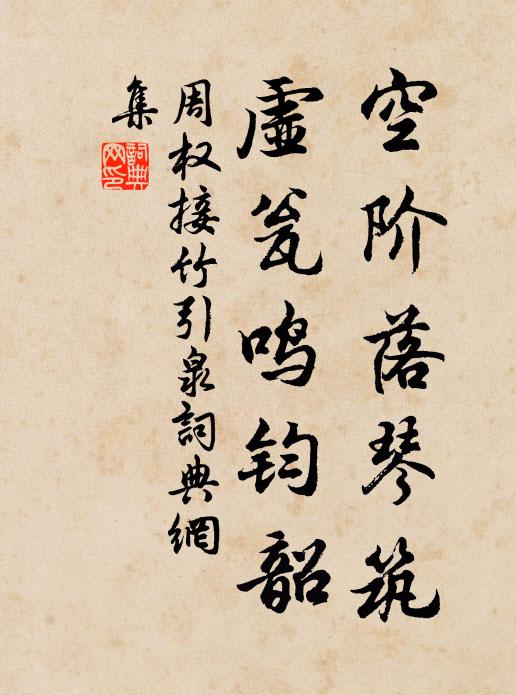 空阶落琴筑
虚瓮鸣钧韶
周权接竹引泉詞典網
集
詞典
网印